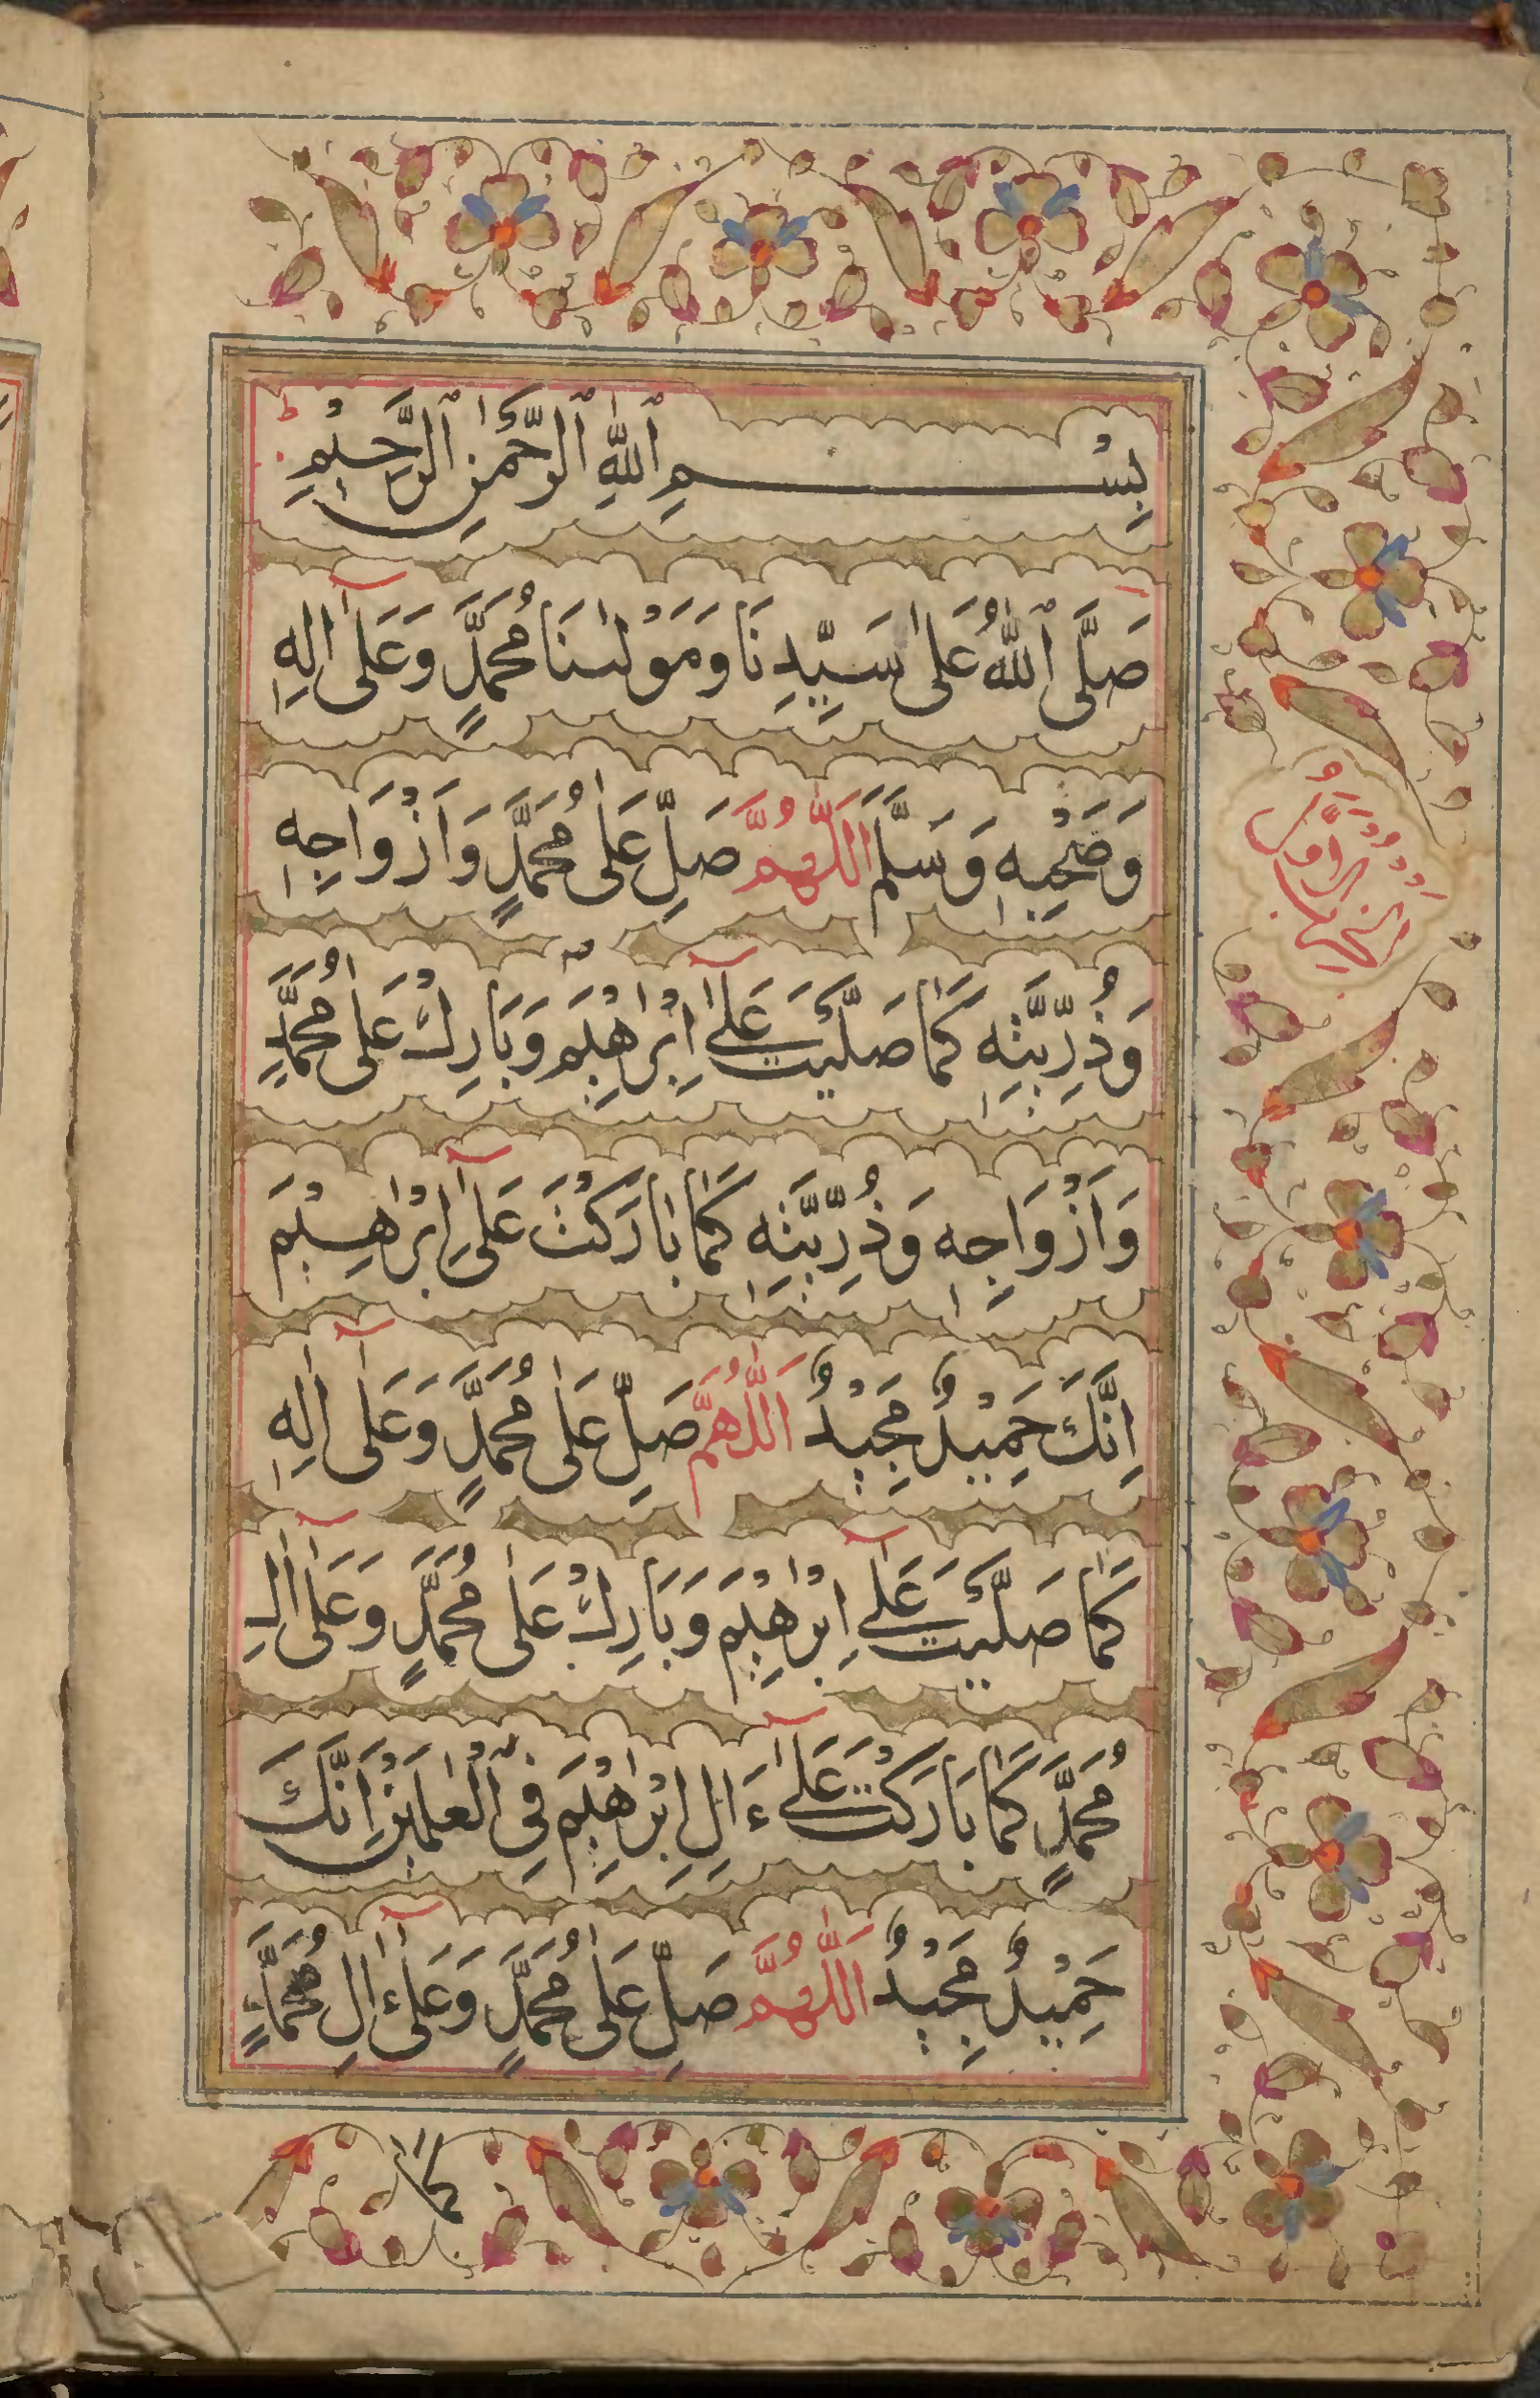 بِسْمِ ٱللّٰهِ ٱلرَّحْمٰنِ ٱلرَّحِيْمِ
صَلَّى ٱللّٰهُ عَلٰى سَيِّدِنَا وَمَوْلٰىنَا مُحَمَّدٍ وَعَلٰٓى اٰلِهٖ
وَصَحْبِهٖ وَسَلَّمَ اَللّٰهُمَّ صَلِّ عَلٰى مُحَمَّدٍ وَاَزْوَاجِهٖ
وَذُرِّيَّتِهٖ كَمَا صَلَّيْتَ عَلٰٓى اِبْرٰهِيْمَ وَبَارِكْ عَلٰى مُحَمَّدٍ
وَاَزْوَاجِهٖ وَذُرِّيَّتِهٖ كَمَا بَارَكْتَ عَلٰٓى اِبْرٰهِيْمَ
اِنَّكَ حَمِيْدٌ مَّجِيْدٌ اَللّٰهُمَّ صَلِّ عَلٰى مُحَمَّدٍ وَعَلٰٓى اٰلِهٖ
كَمَا صَلَّيْتَ عَلٰٓى اِبْرٰهِيْمَ وَبَارِكْ عَلٰى مُحَمَّدٍ وَعَلٰٓى اٰلِ
مُحَمَّدٍ كَمَا بَارَكْتَ عَلٰٓى ءَالِ اِبْرٰهِيْمَ فِى ٱلْعٰلَمِيْنَ اِنَّكَ
حَمِيْدٌ مَّجِيْدٌ اَللّٰهُمَّ صَلِّ عَلٰى مُحَمَّدٍ وَعَلٰٓى ءَالِ مُحَمَّدٍ
كَمَا